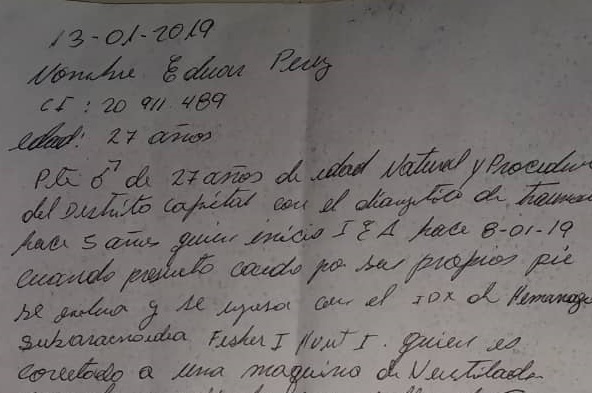 13-01-2019
Nombre Eduar Perez
CI: 20 911.489
edad: 27 años
Pte ♂ de 27 años de edad Natural y Proceden
del Distrito capital con el diangstico de trauma
hace 5 años quien inicio I E A hace 8-01-19
cuando presento caida por sus propios pie
se evalua y se ingresa con el IDX de Hemorragi
subaracnoidea Fisher I Hunt I. quien es
conectado a una maquina de Ventilado